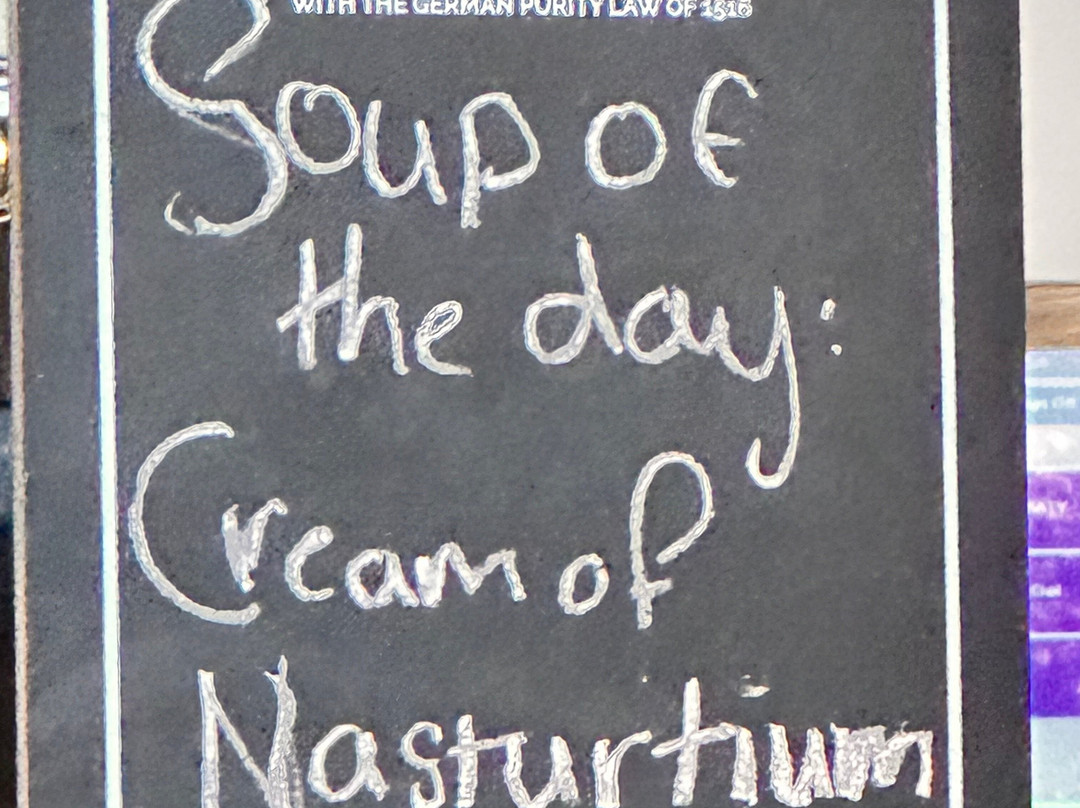 WITH THE GERMAN PURITY LAW OF 1516
Soup of
the day:
Cream of
Nasturtium